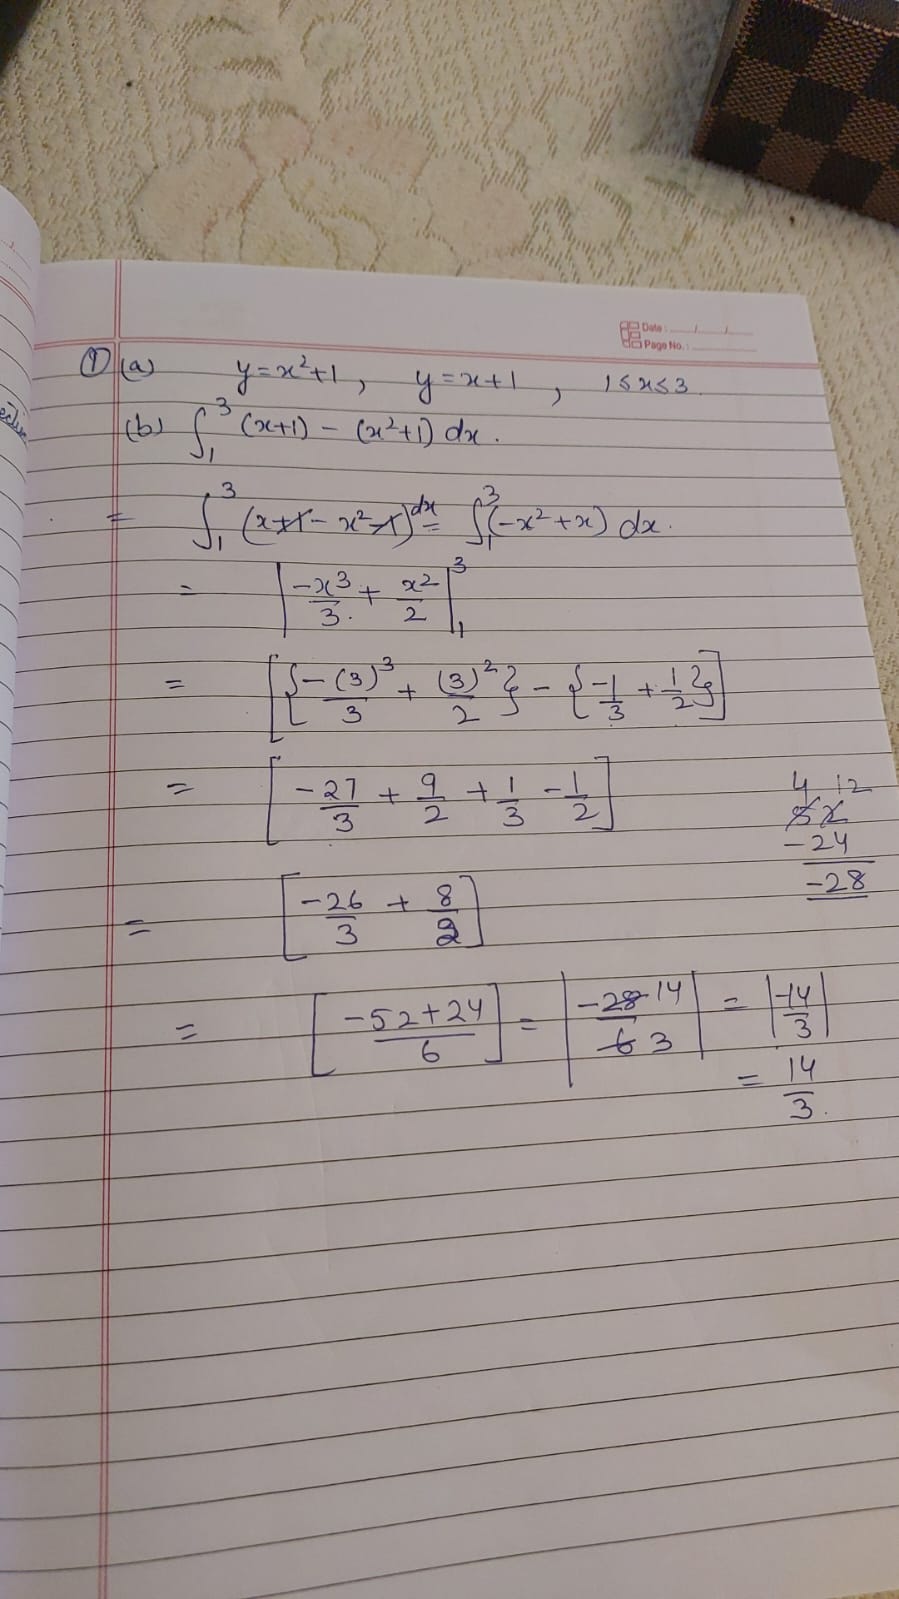 Date : / /
Page No. :
① (a) y=x²+1, y=x+1, 1≤x≤3
(b) ∫₁³ (x+1) - (x²+1) dx.
= ∫₁³ (x+1-x²-1) dx = ∫₁³ (-x²+x) dx.
= |-x³/3 + x²/2|₁³
= [{-(3)³/3 + (3)²/2} - {-1/3 + 1/2}]
= [-27/3 + 9/2 + 1/3 - 1/2]
4 12
52
-24
-28
= [-26/3 + 8/2]
= [-52+24/6] = |-28 14/6 3| = |-14/3|
= 14/3.